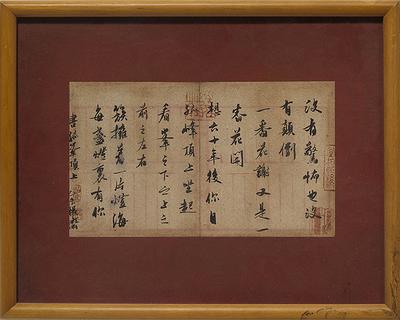 沒有驚怖也沒
有顛倒
一番花謝又是一
番花開
想六十年後你自
孤峰頂上坐起
看峯之下之上之
前之左右
簇擁着一片燈海
每盞燈裏有你
書孤峯頂上